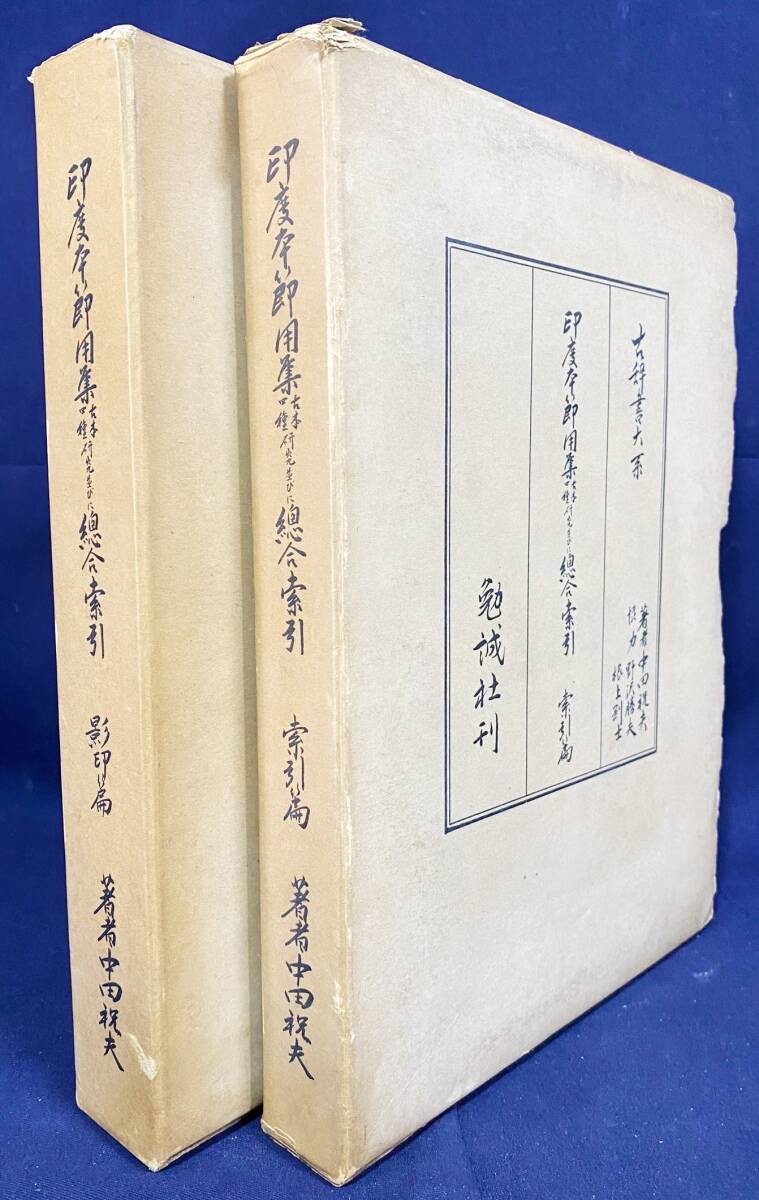 印度本節用集古本四種研究並びに總合索引
影印篇
著者中田祝夫
印度本節用集古本四種研究並びに總合索引
索引篇
著者中田祝夫
古辞書大系
著者中田祝夫
協力野沢勝夫
根上剛士
印度本節用集古本四種研究並びに總合索引 索引篇
勉誠社刊